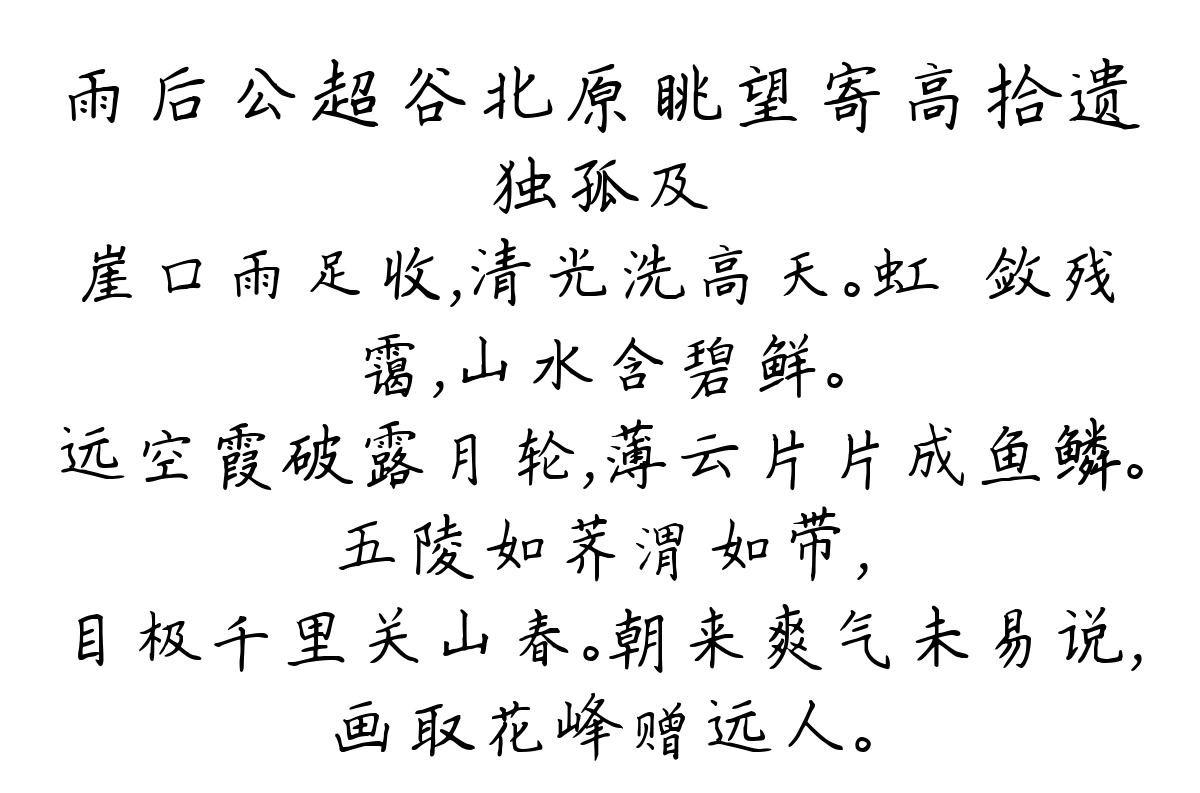 雨后公超谷北原眺望寄高拾遗
独孤及
崖口雨足收,清光洗高天。虹 敛残
霭,山水含碧鲜。
远空霞破露月轮,薄云片片成鱼鳞。
五陵如荠渭如带,
目极千里关山春。朝来爽气未易说,
画取花峰赠远人。